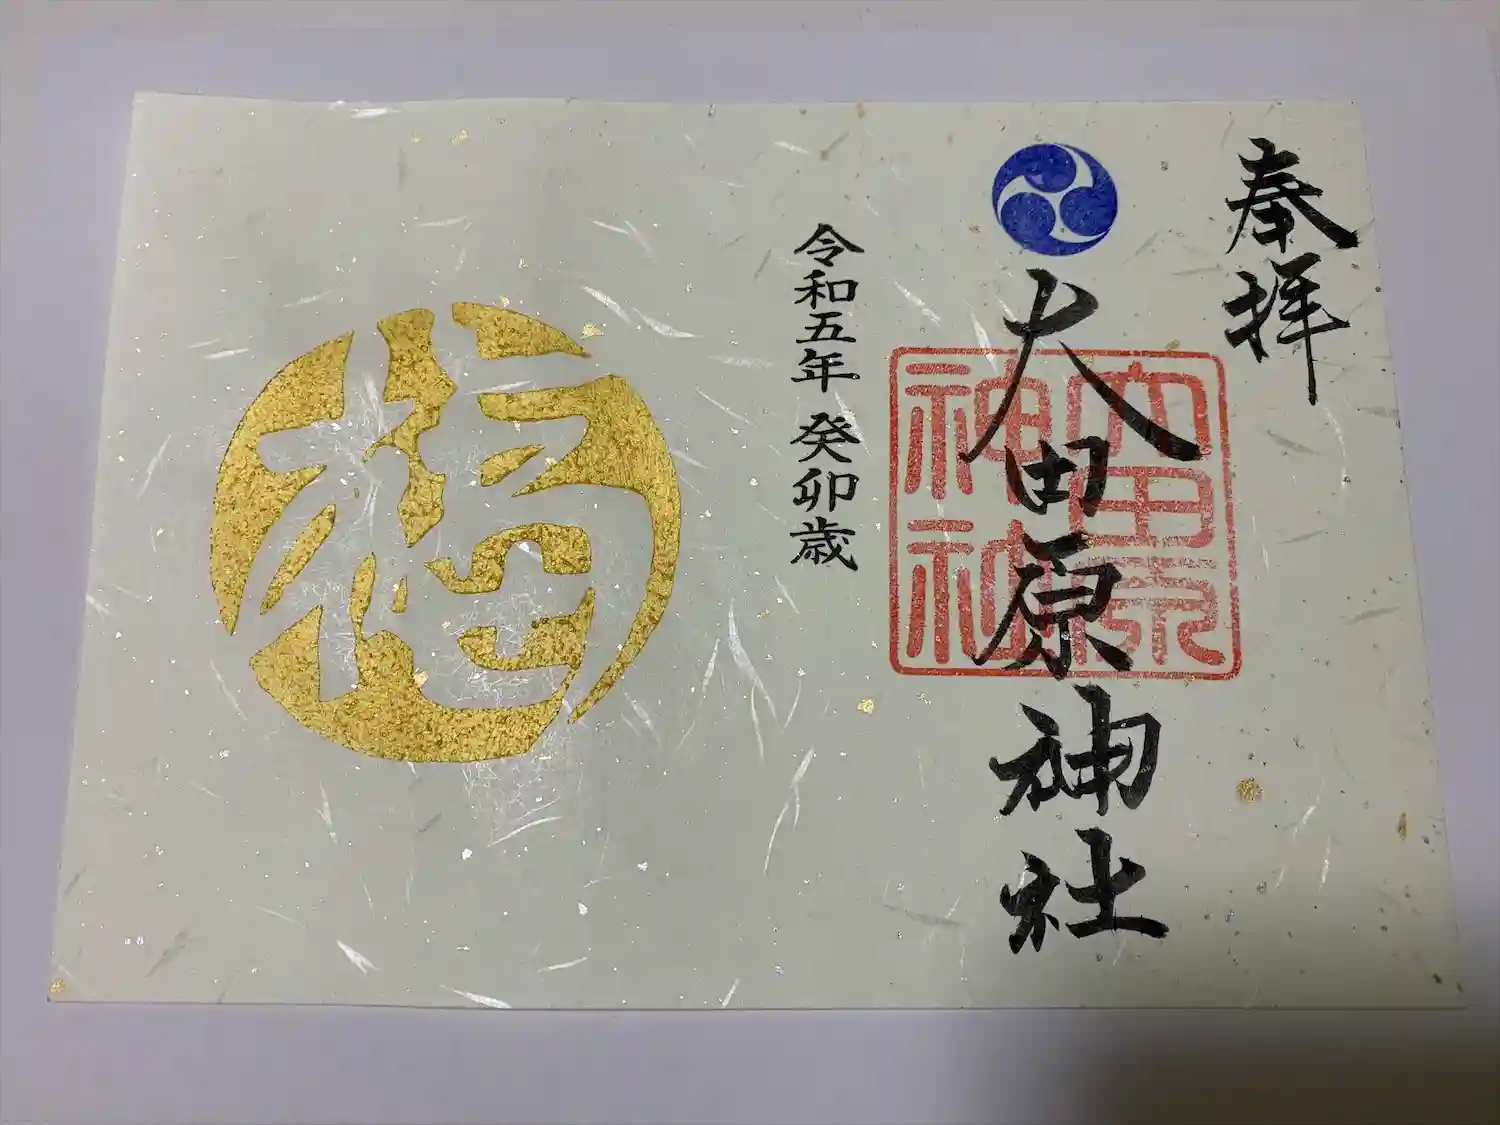 奉拝
大田原神社
大田原
神社
令和五年 癸卯歳